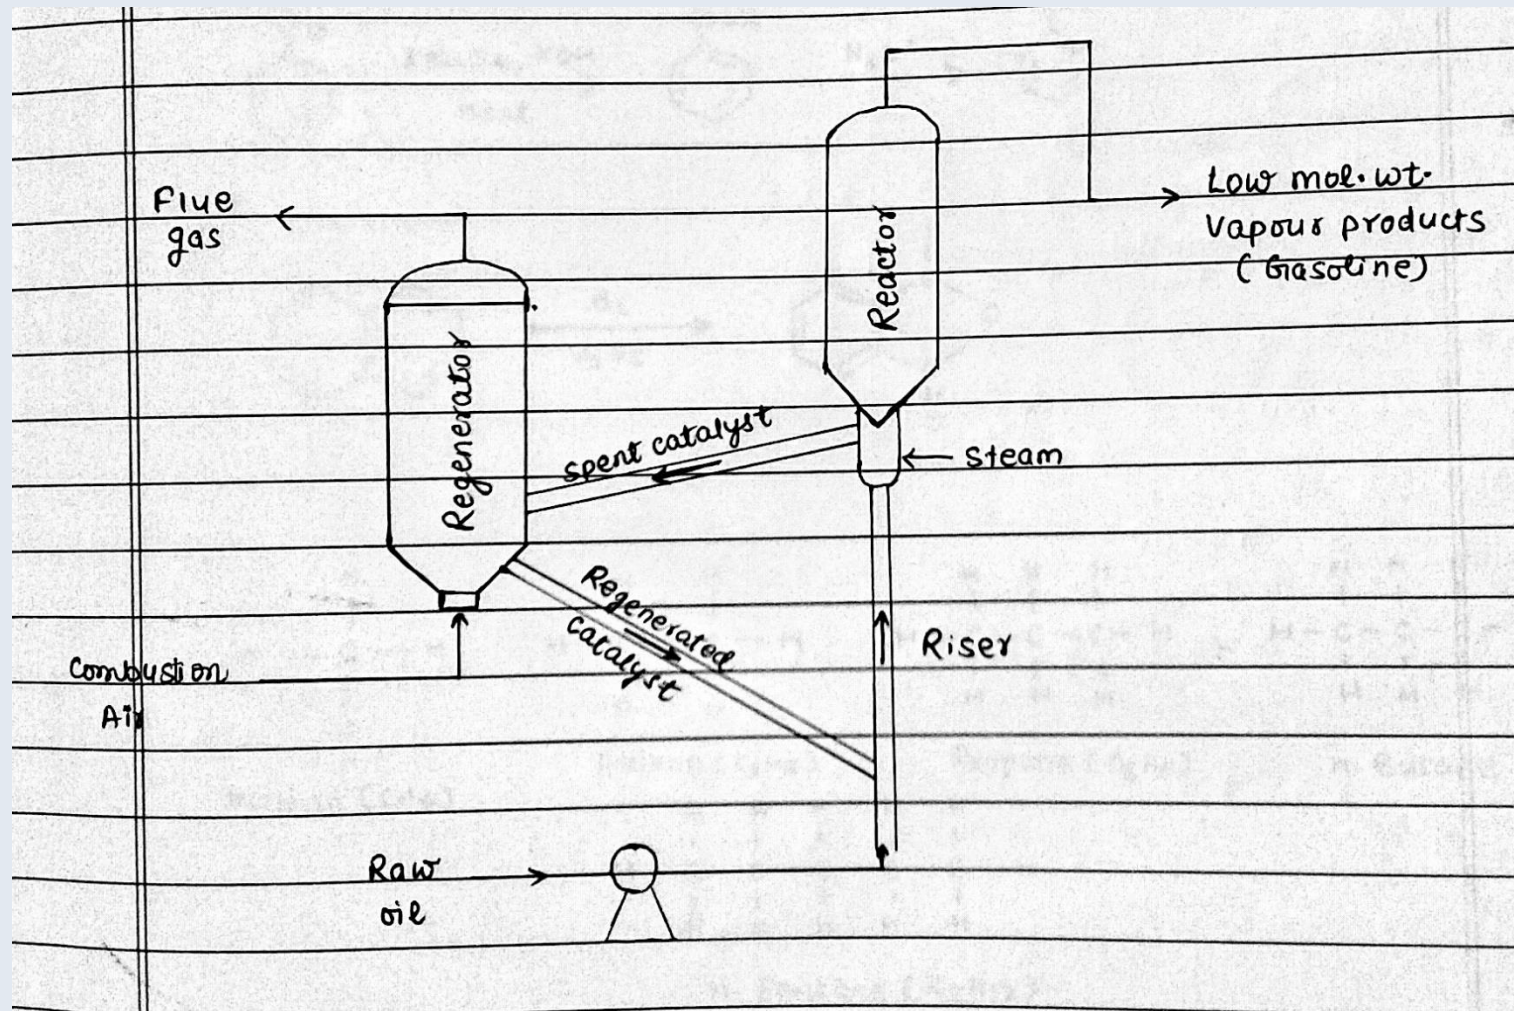 Flue
gas
Low mol. wt.
Vapour products
(Gasoline)
Reactor
Regenerator
spent catalyst
steam
Regenerated
catalyst
Riser
Combustion
Air
Raw
oil